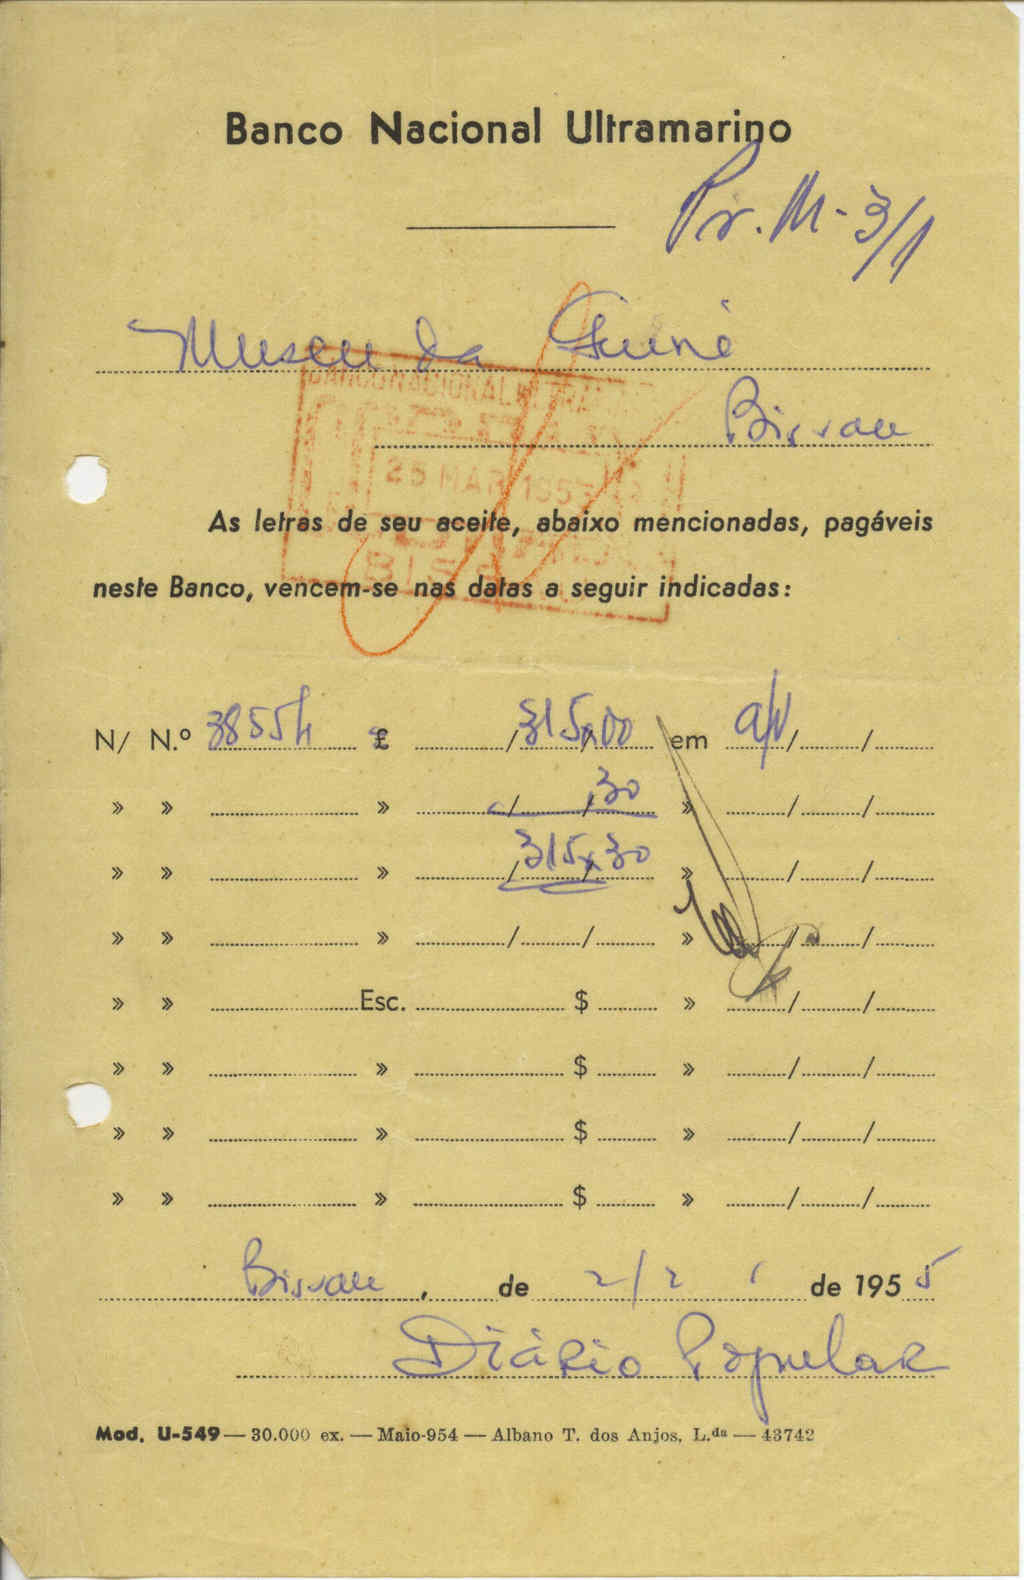 Banco Nacional Ultramarino
Pr. M-3/1
Museu da Guiné
Bissau
BANCO NACIONAL
25 MAR 195
As letras de seu aceite, abaixo mencionadas, pagáveis
neste Banco, vencem-se nas datas a seguir indicadas:
N/ N.º 38554 £ / 315,00 em a/v / /
» » » / / ,30 » / /
» » » / 315,30 » / /
» » » / / » / /
» » Esc. $ » / /
» » » $ » / /
» » » $ » / /
» » » $ » / /
Bissau, de 2/2 de 1955
Diário Popular
Mod. U-549 — 30.000 ex. — Maio-954 — Albano T. dos Anjos, L.da — 43742